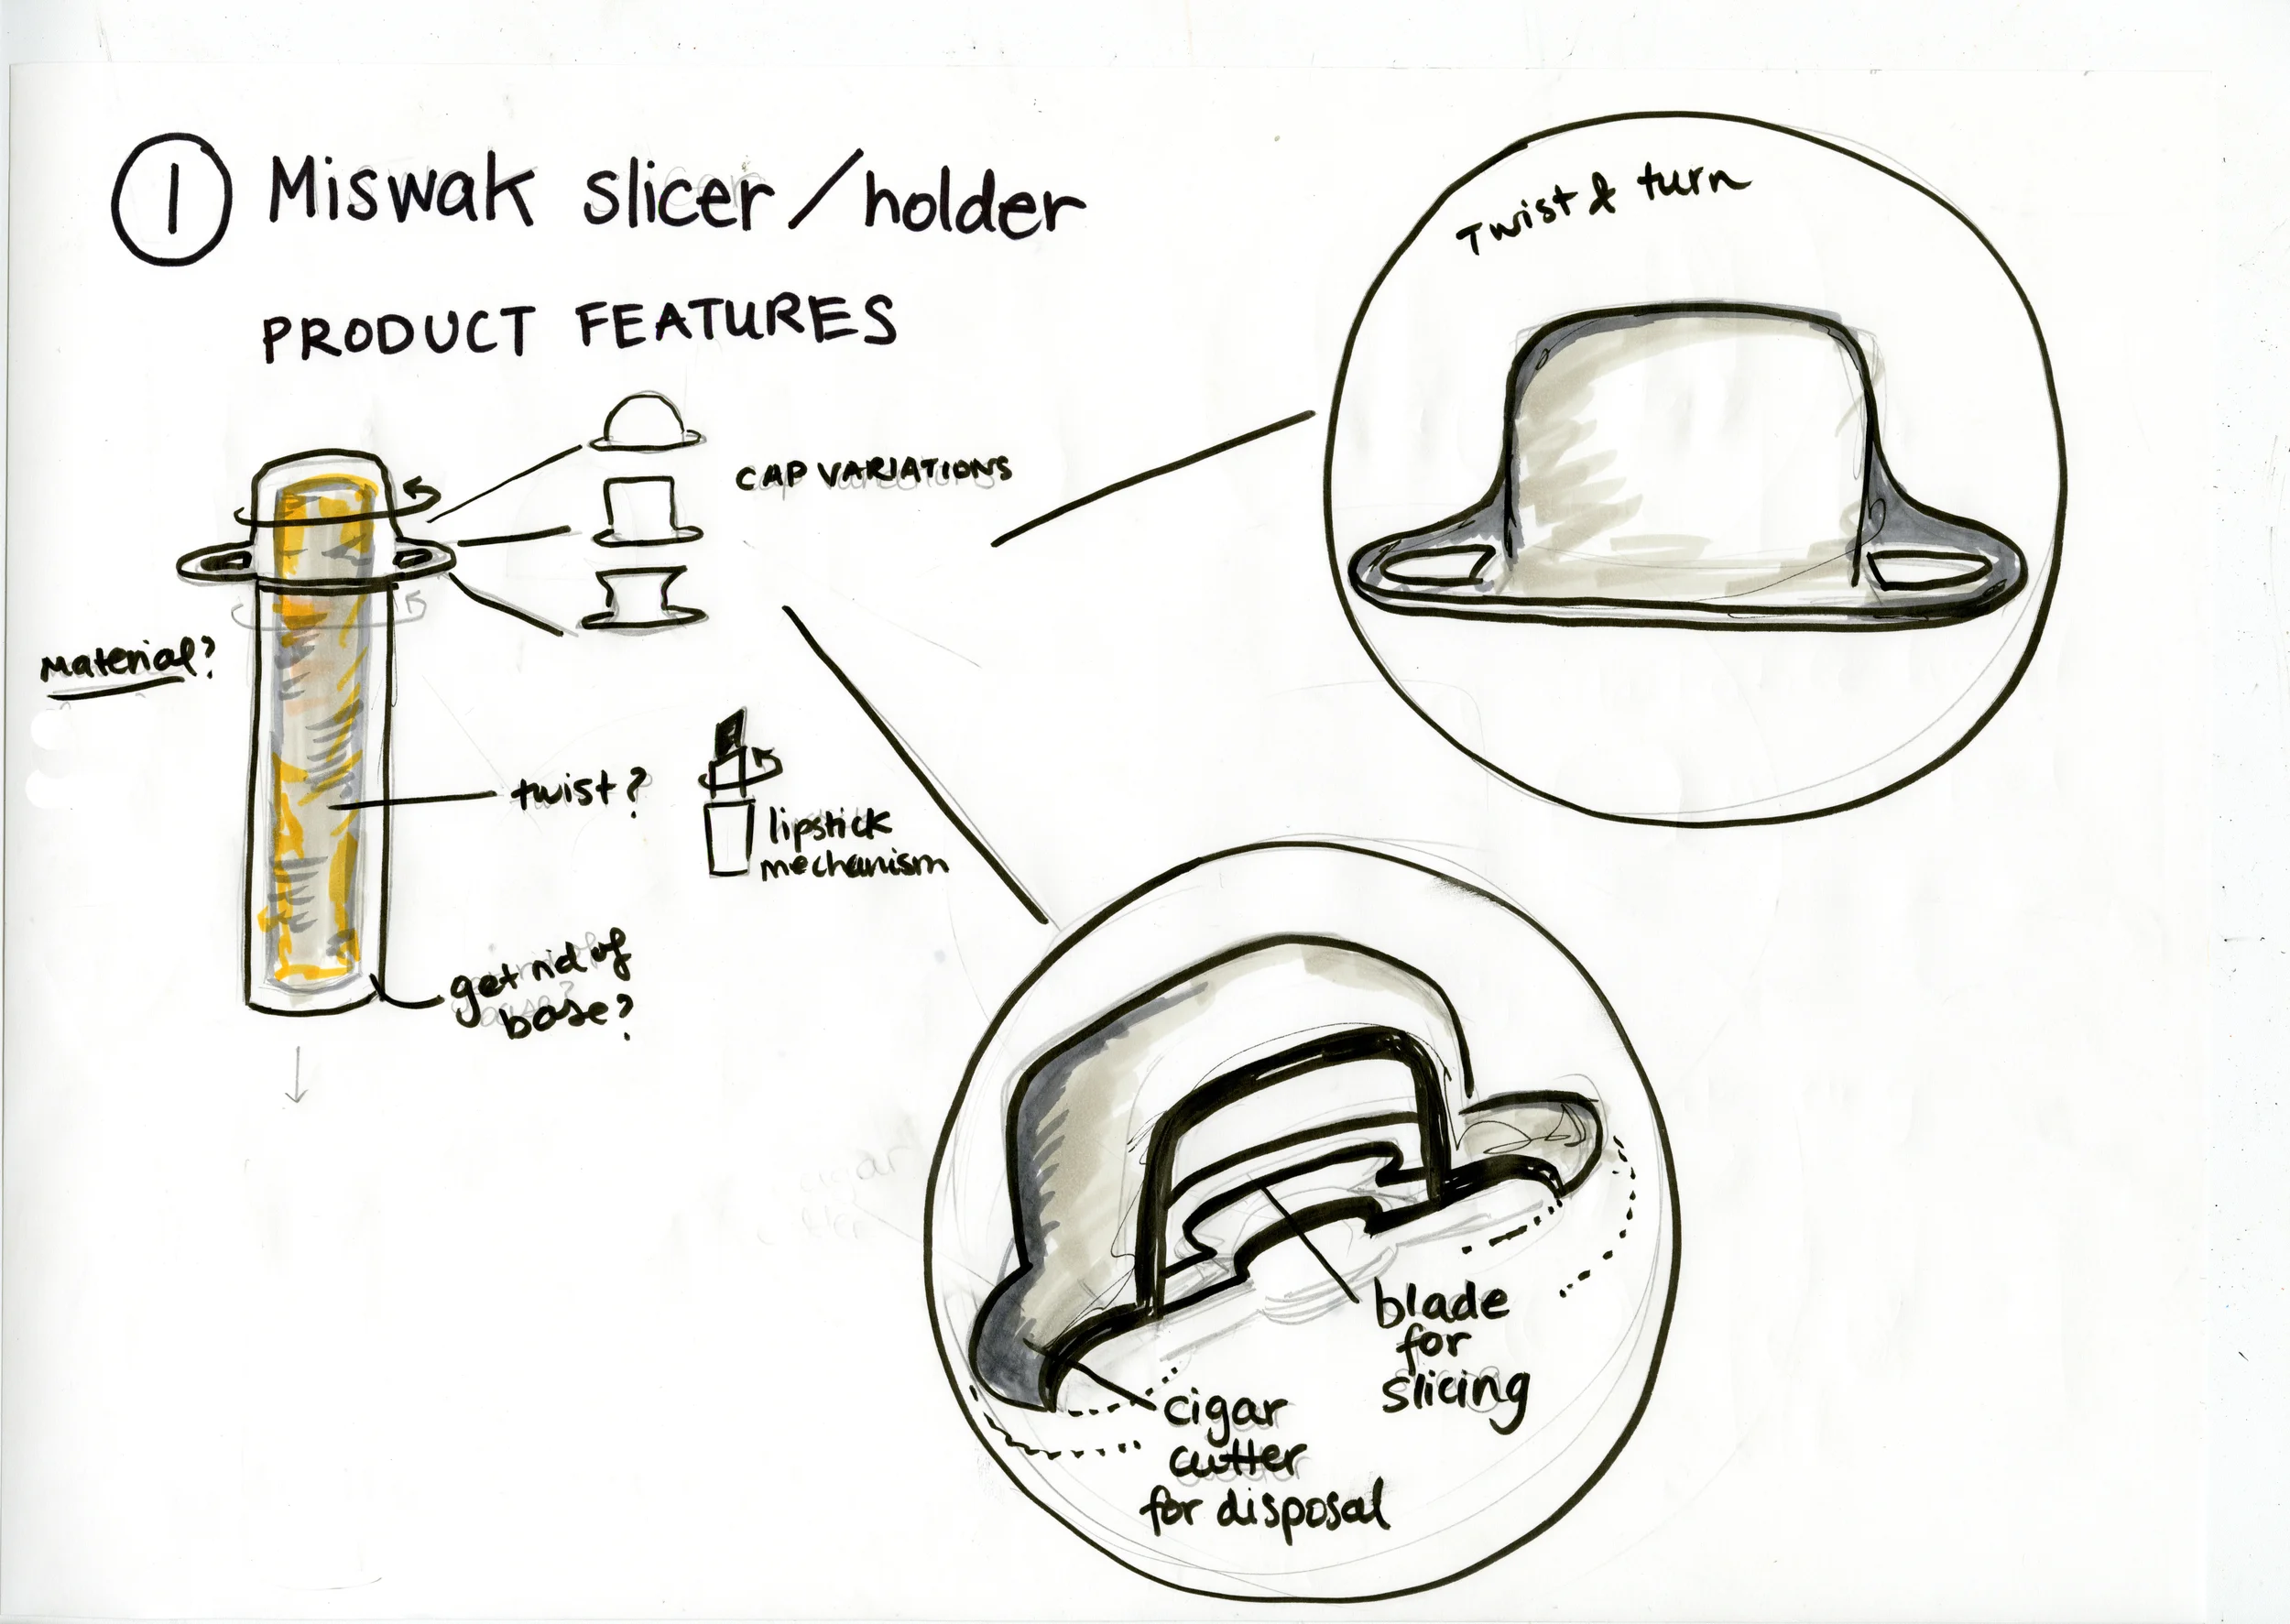 1 Miswak slicer/holder
PRODUCT FEATURES
Twist & turn
CAP VARIATIONS
Material?
twist?
lipstick
mechanism
get rid of
base?
blade
for
slicing
cigar
cutter
for disposal